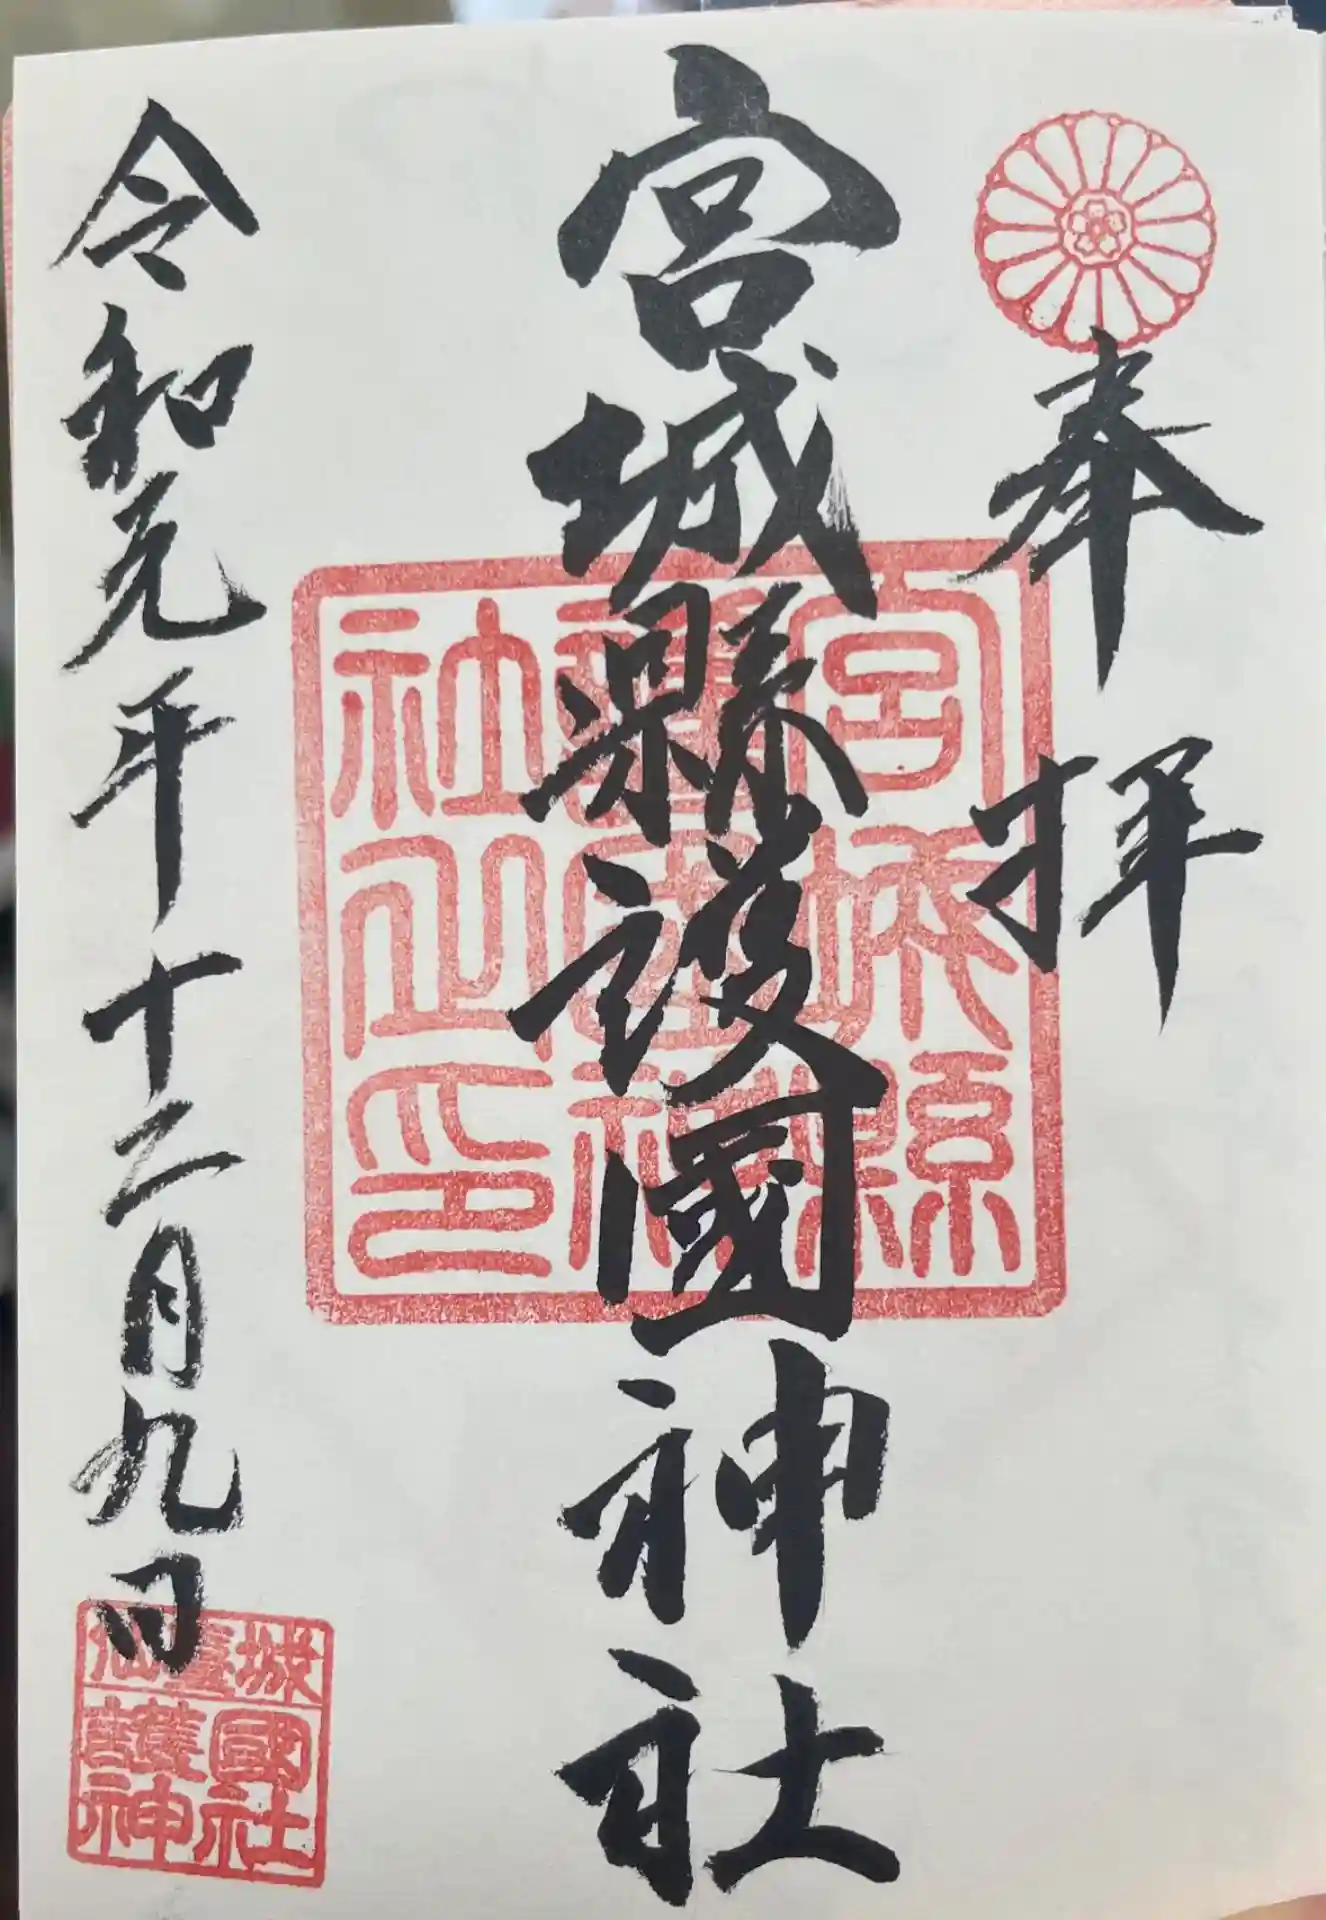 奉拝
宮城縣護國神社
宮城縣
護國神
社之印
令和元年十二月九日
仙臺城
護國
神社